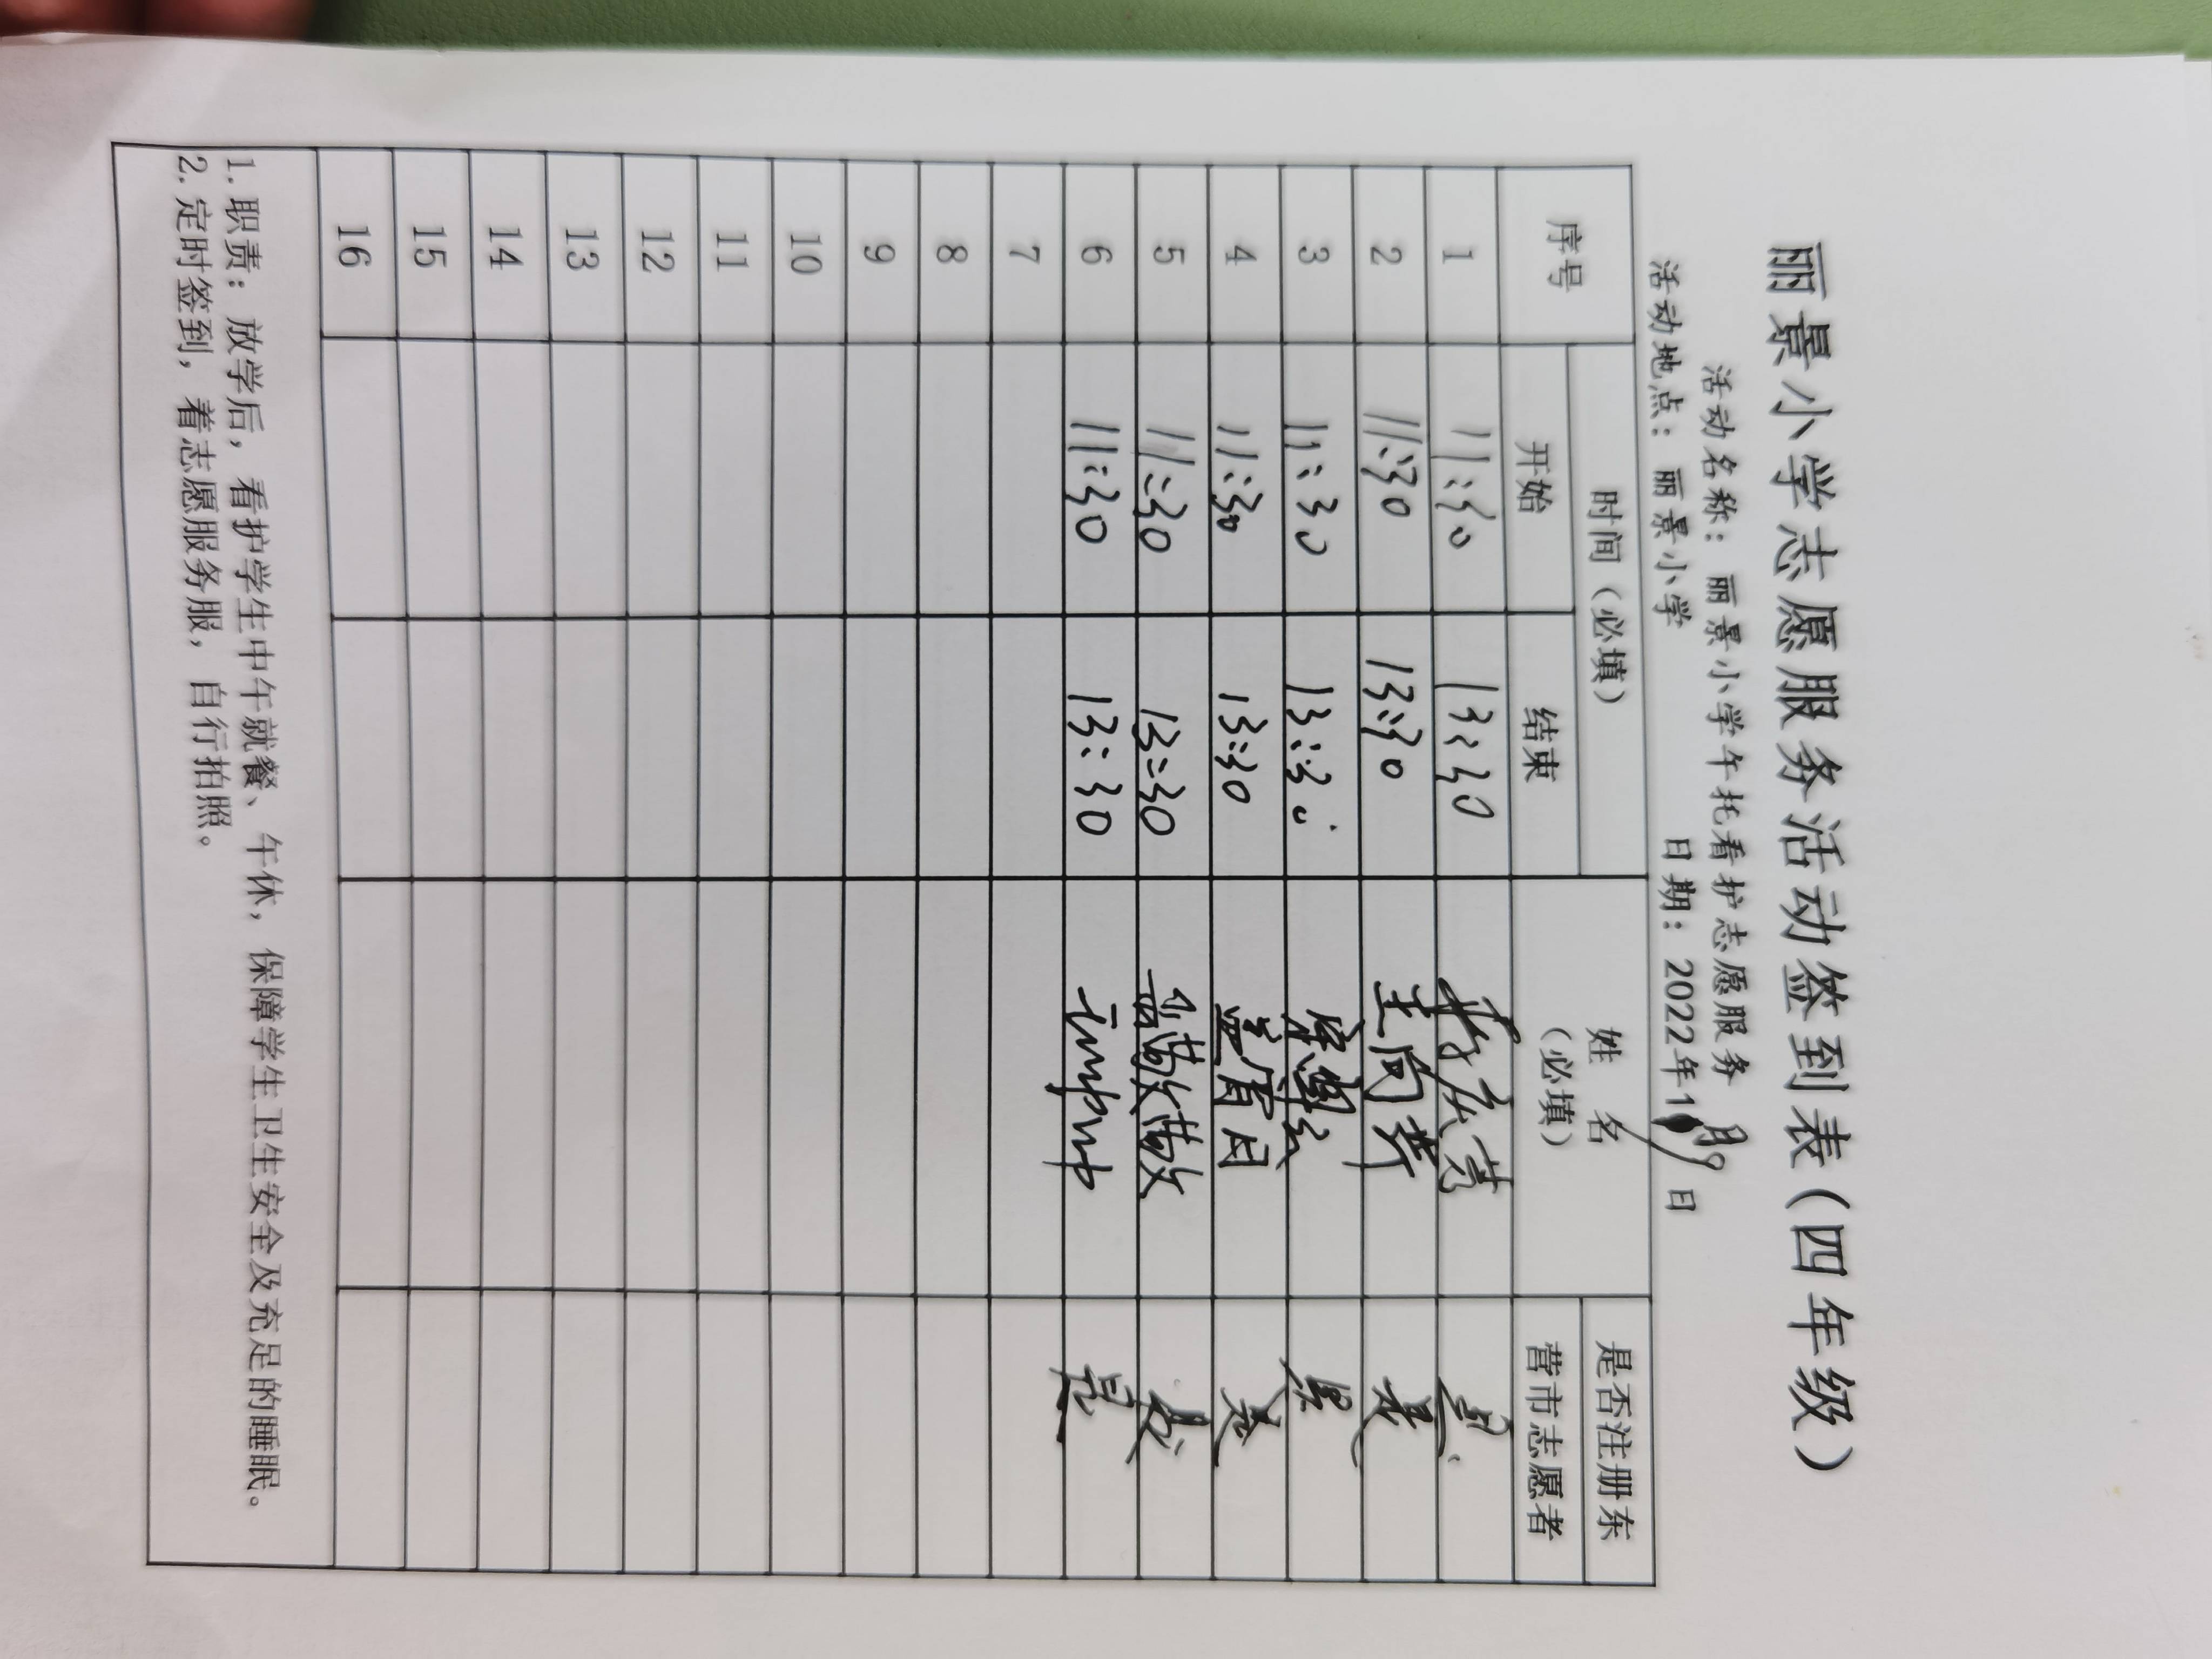 丽景小学志愿服务活动签到表（四年级）
活动名称：丽景小学午托看护志愿服务
活动地点：丽景小学 日期：2022年1 月9日
序号 时间（必填） 姓 名（必填） 是否注册东营市志愿者
开始 结束
1 11:30 13:30 是
2 11:30 13:30 是
3 11:30 13:30 是
4 11:30 13:30 是
5 11:30 13:30 是
6 11:30 13:30 是
7
8
9
10
11
12
13
14
15
16
1. 职责：放学后，看护学生中午就餐、午休，保障学生卫生安全及充足的睡眠。
2. 定时签到，着志愿服务服，自行拍照。